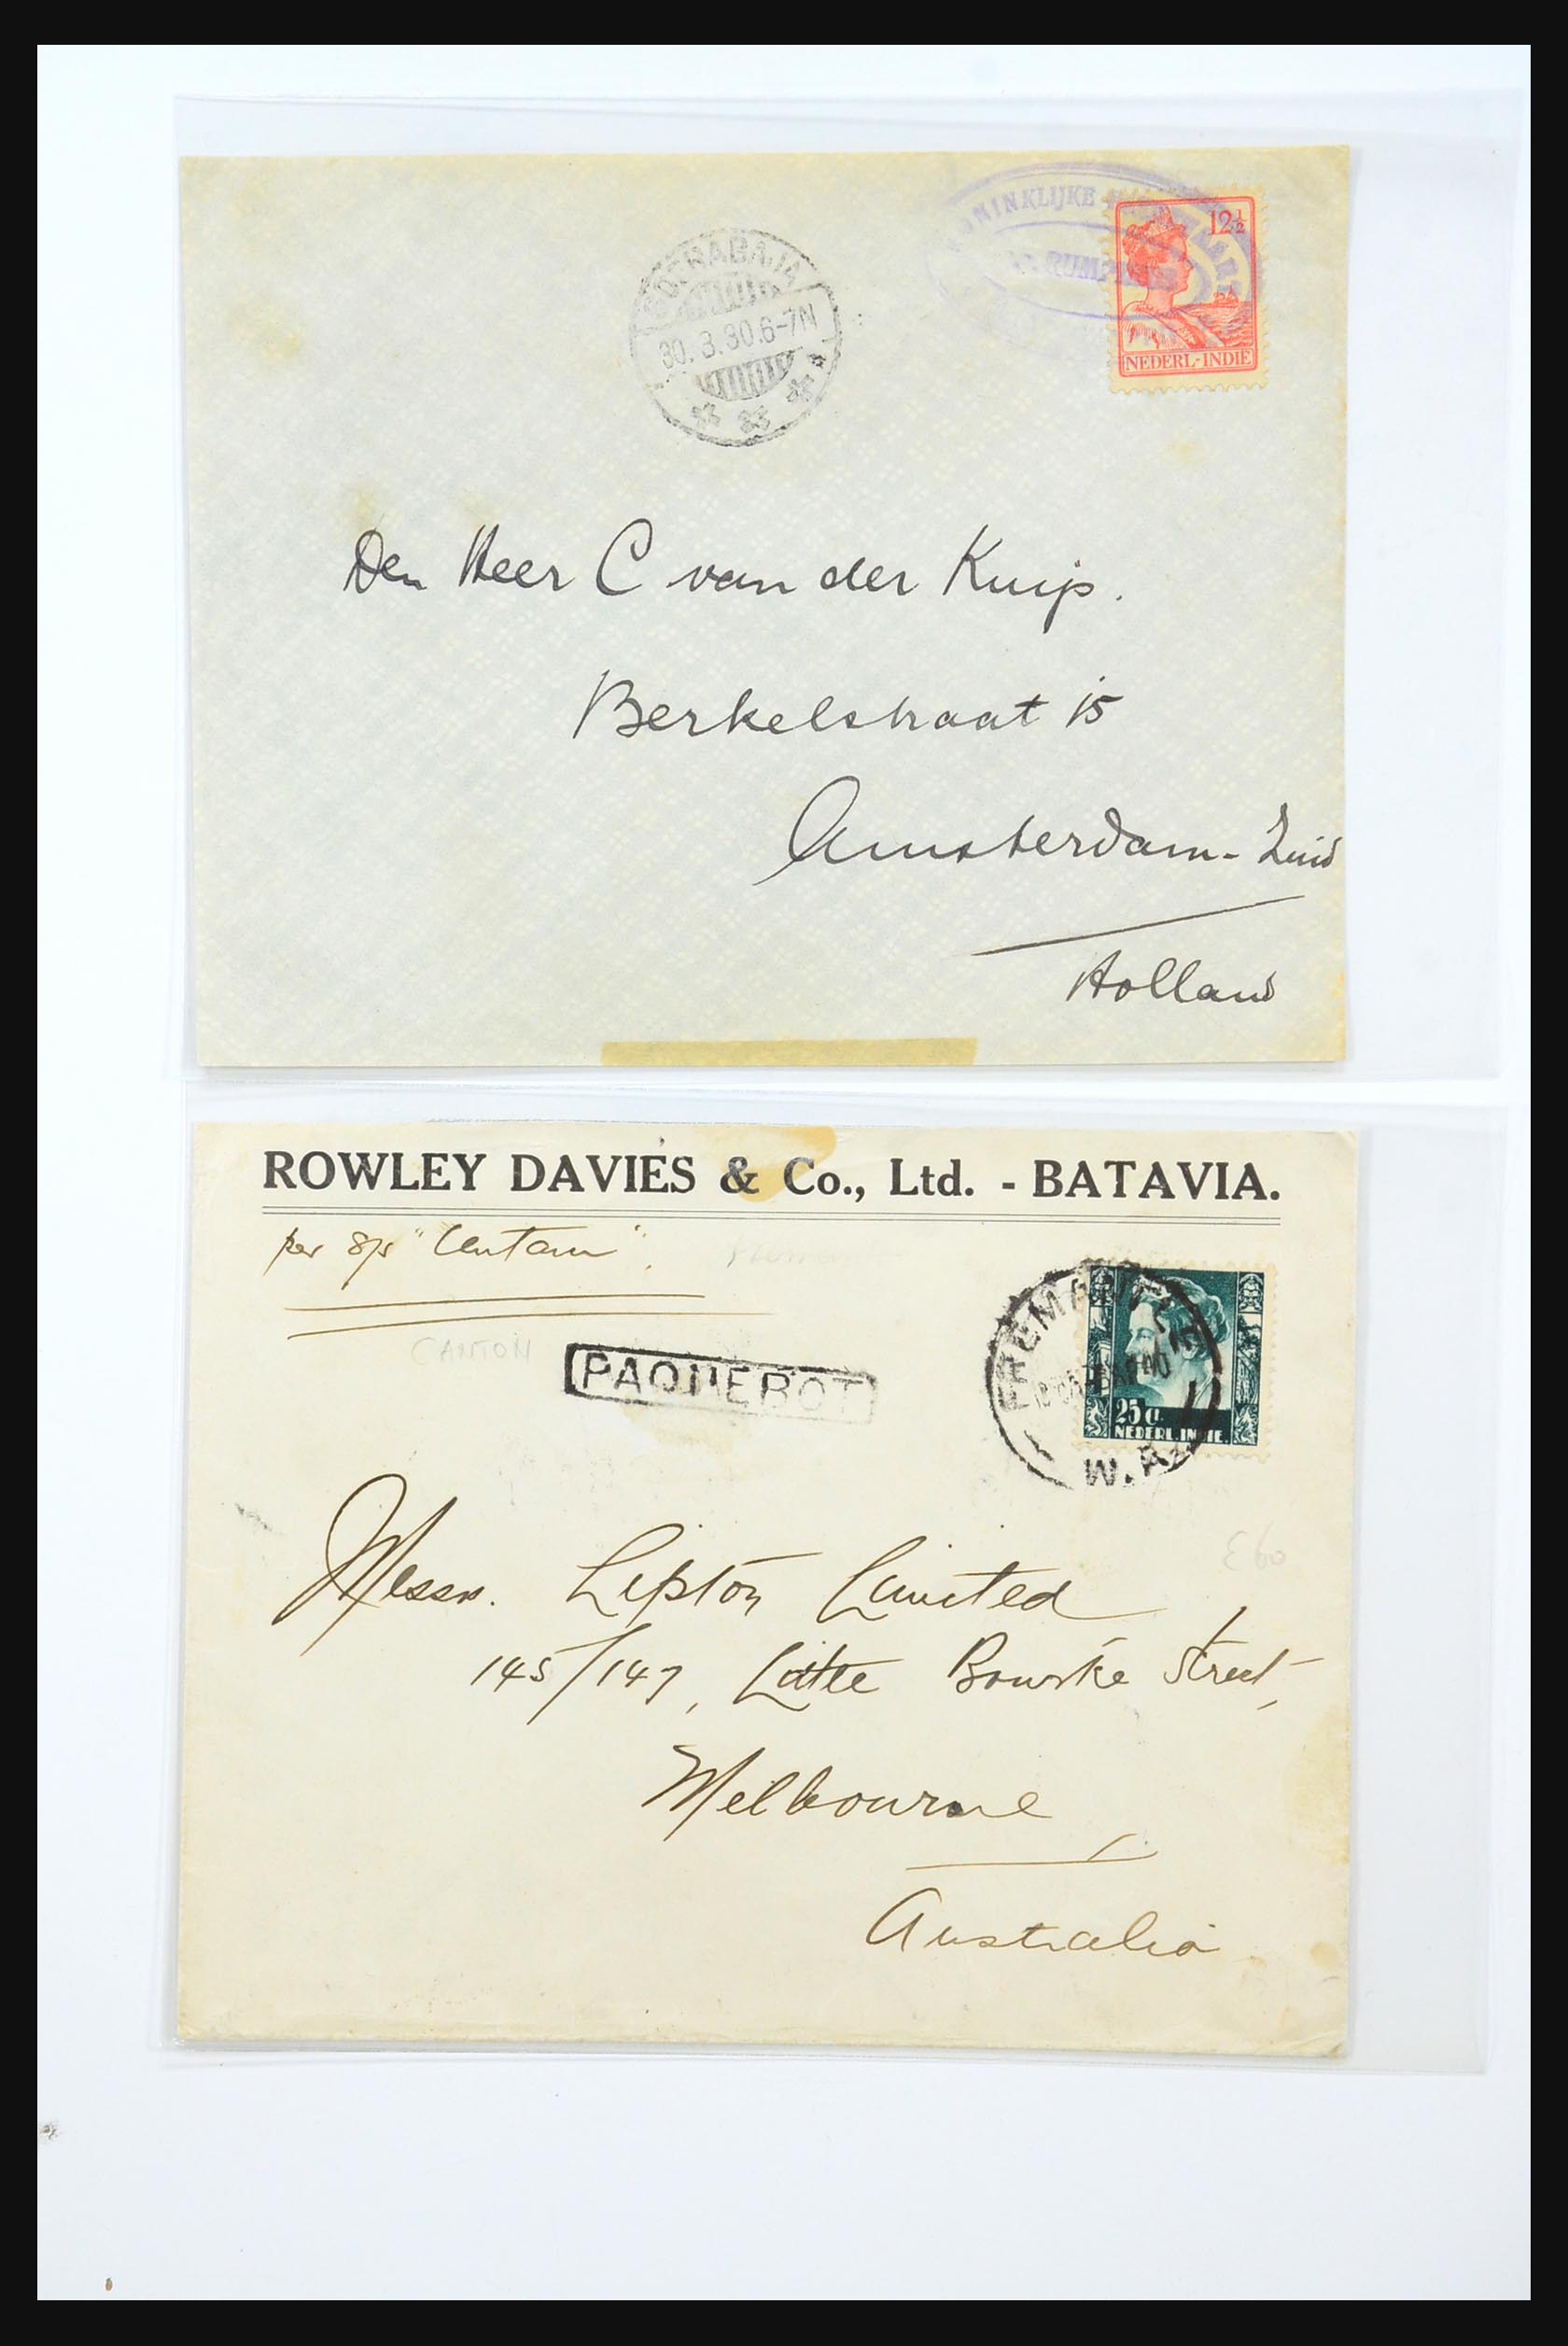 KONINKLIJKE
12½
NEDERL-INDIË
SOERABAJA
30.3.30.6-7N
Den Heer C van der Kuijp.
Berkelstraat 15
Amsterdam-Zuid
Holland
ROWLEY DAVIES & Co., Ltd. - BATAVIA.
per s/s "Centaur".
CANTON
PAQUEBOT
FREMANTLE
W.A.
25 ct.
NEDERL. INDIE.
£60
Messrs. Lipton Limited,
145/147, Little Bourke Street,
Melbourne
Australia